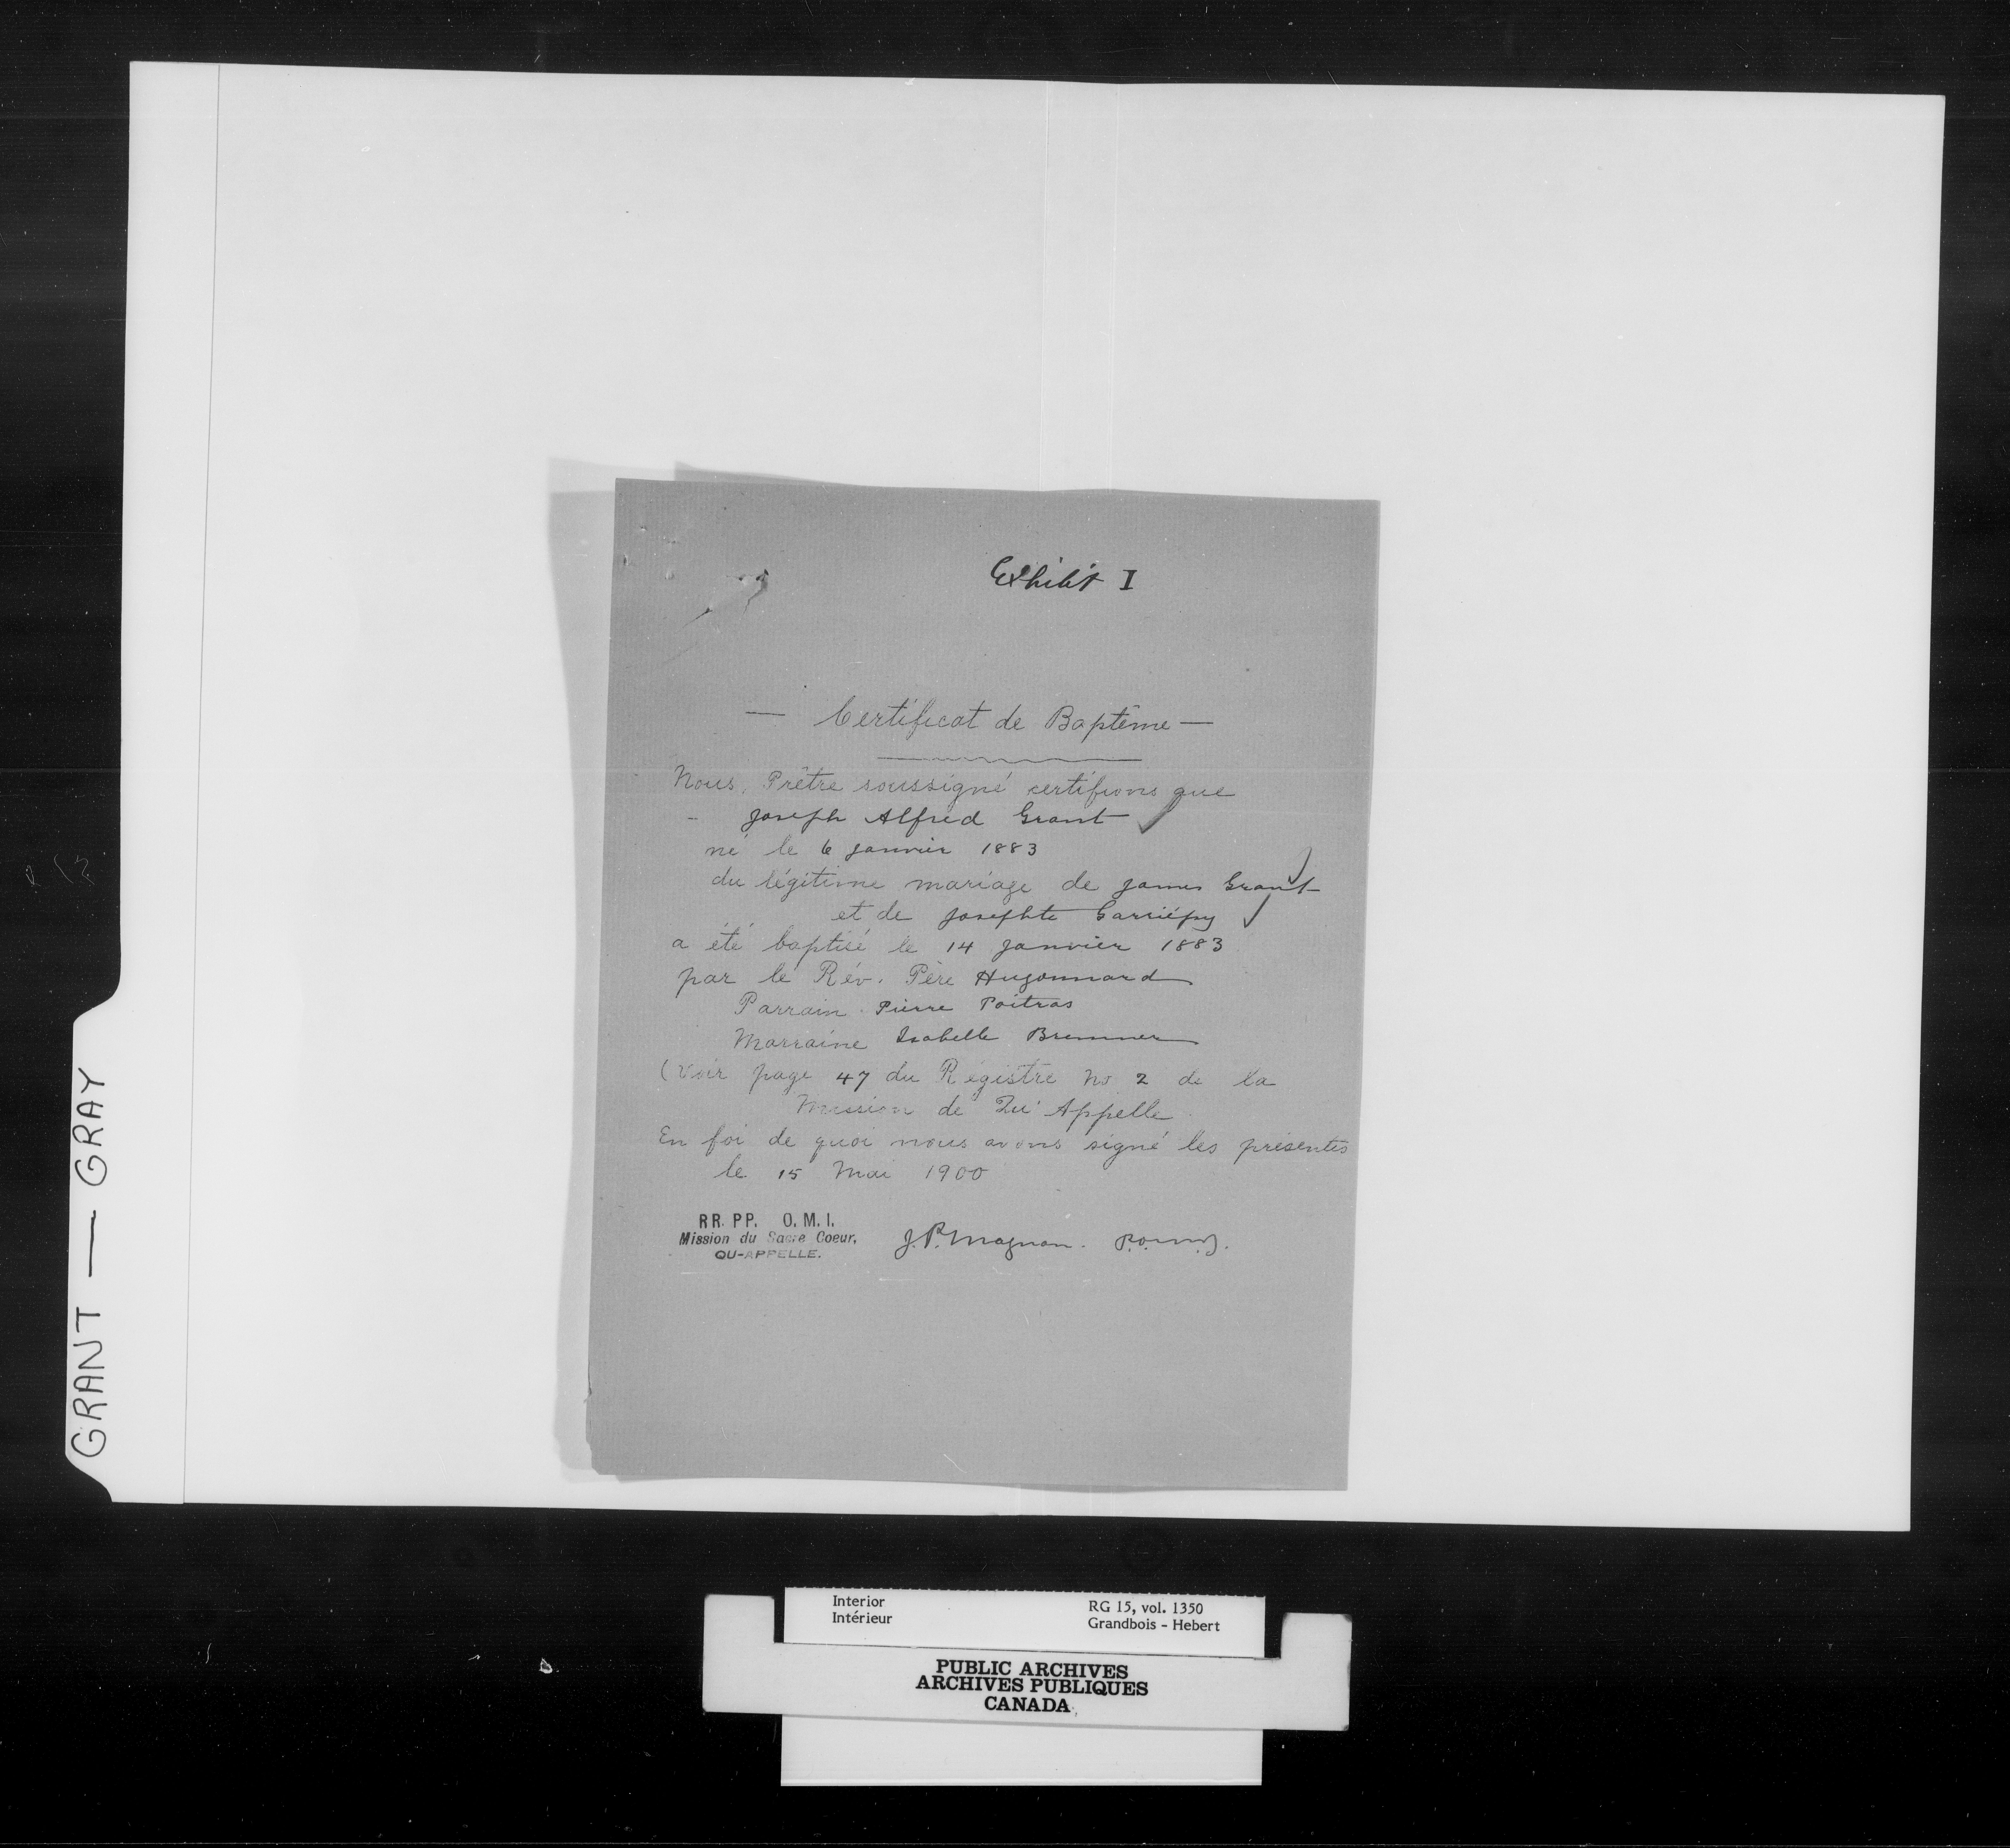 Exhibit I
— Certificat de Baptême —
Nous, Prêtre soussigné certifions que
Joseph Alfred Grant
né le 6 Janvier 1883
du légitime mariage de James Grant
et de Josephte Garriépy
a été baptisé le 14 Janvier 1883
par le Rév. Père Hugonnard
Parrain Pierre Poitras
Marraine Isabelle Bremner
(Voir page 47 du Régistre No 2 de la
Mission de Qu'Appelle
En foi de quoi nous avons signé les présentes
le 15 Mai 1900
RR. PP. O. M. I.
Mission du Sacre Coeur,
QU-APPELLE.
J. P. Magnan.
GRANT — GRAY
Interior
Intérieur
RG 15, vol. 1350
Grandbois - Hebert
PUBLIC ARCHIVES
ARCHIVES PUBLIQUES
CANADA